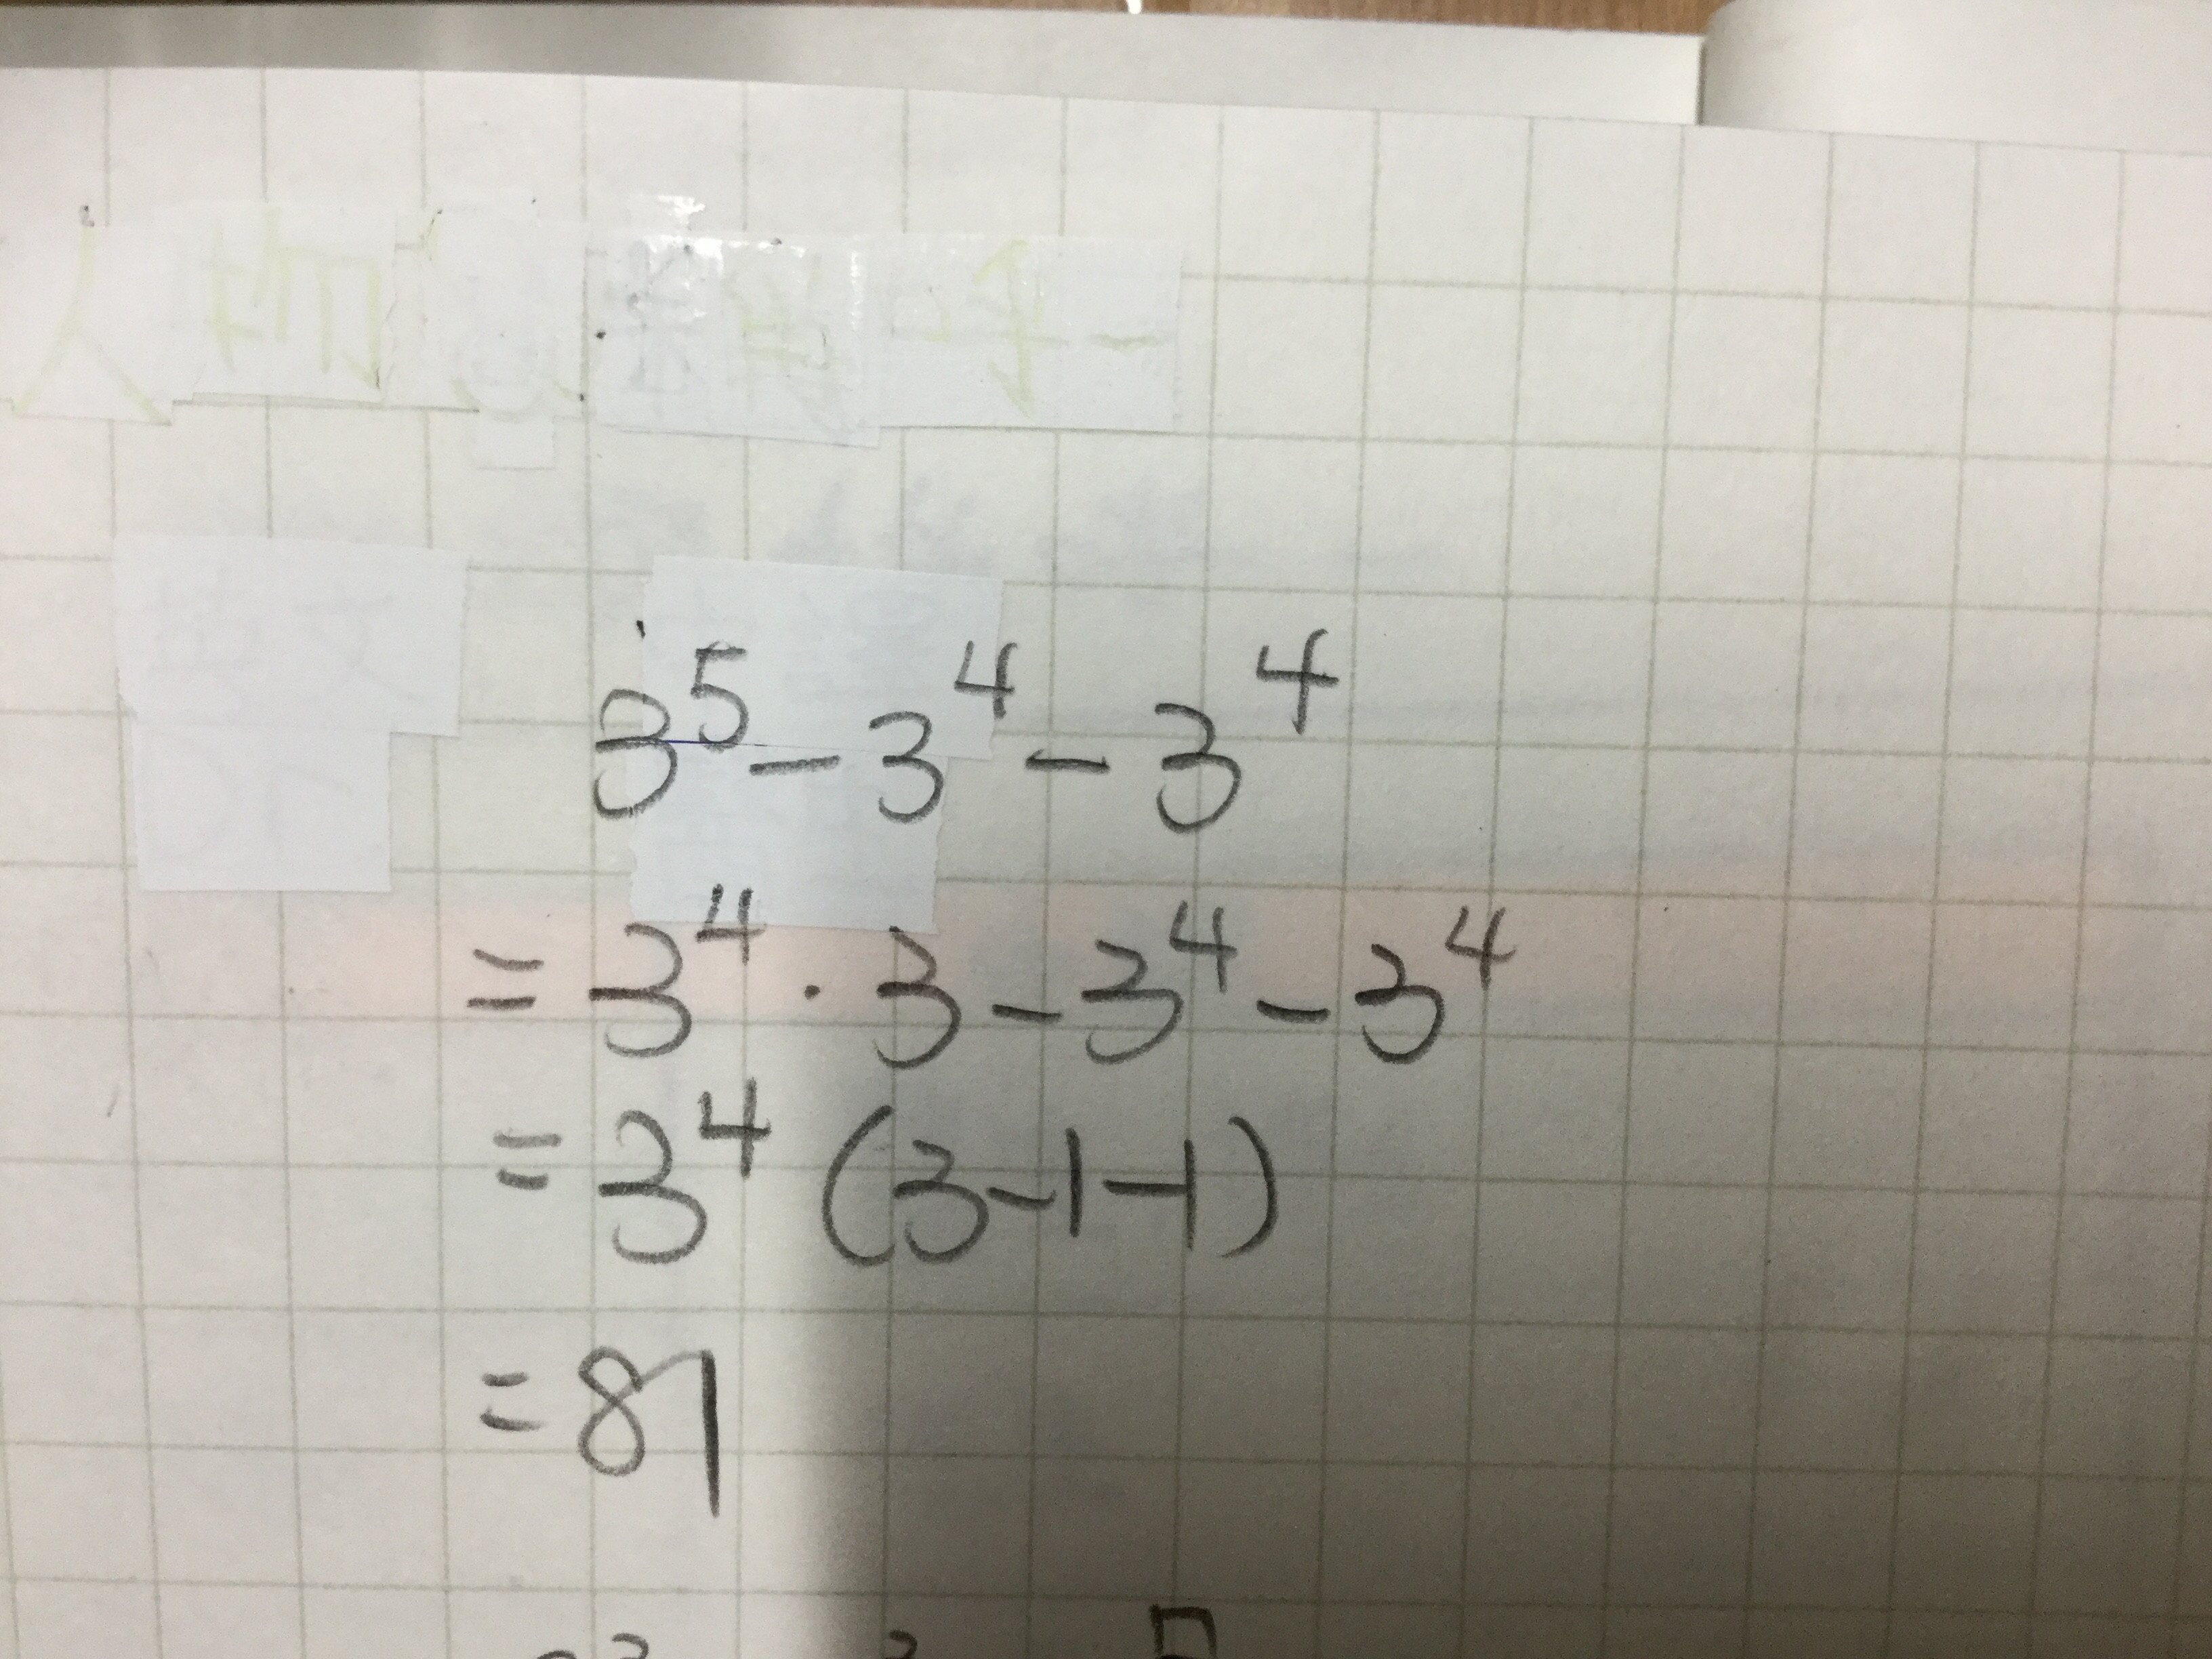 3⁵-3⁴-3⁴
=3⁴·3-3⁴-3⁴
=3⁴(3-1-1)
=81